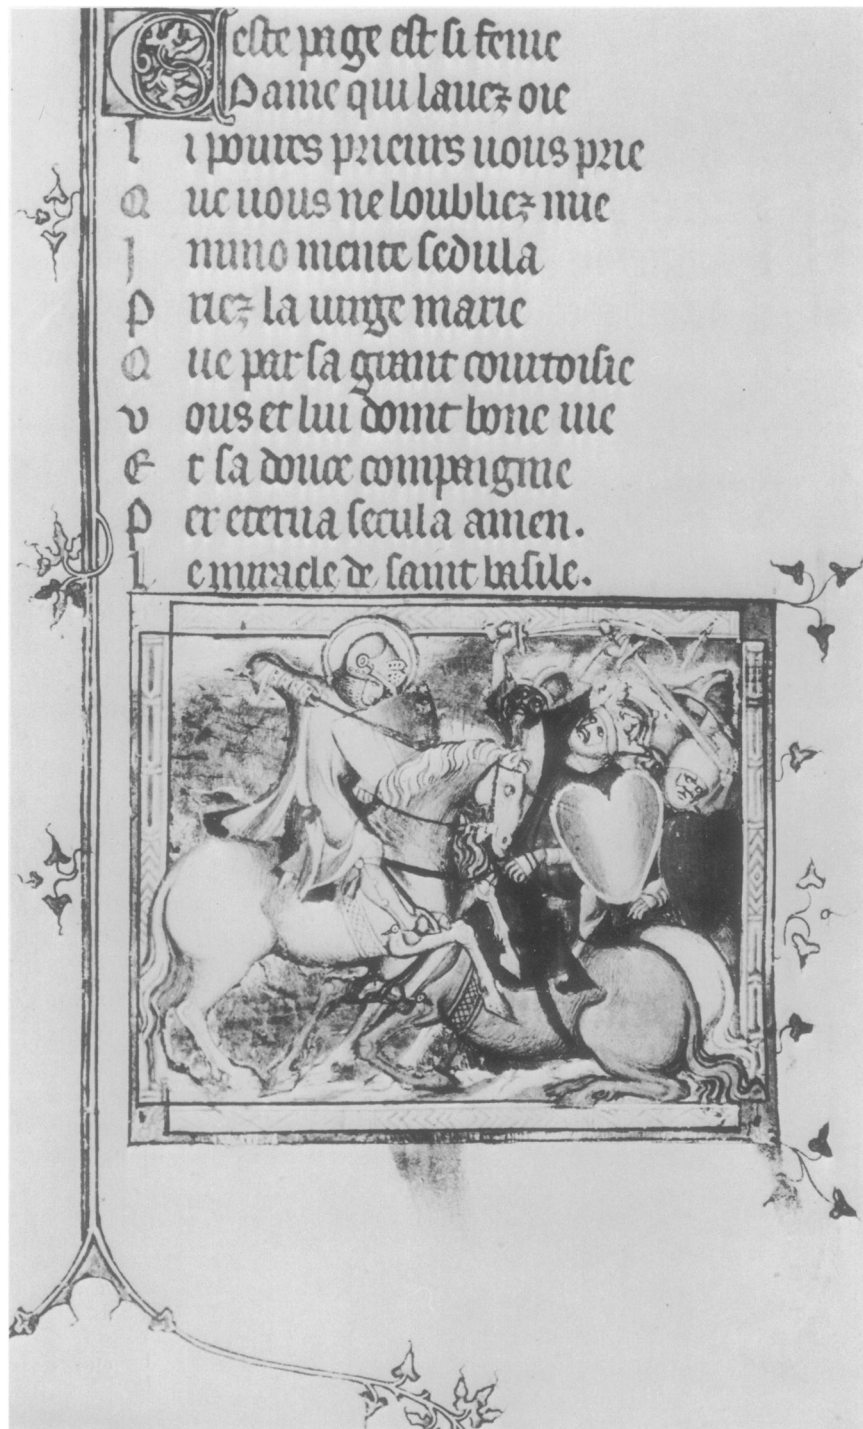 Ceste page est si fenie
Dame qui lauez oie
Li poures prieurs uous prie
Que uous ne loubliez mie
Jmmo mente sedula
Priez la uirge marie
Que par sa grant courtoisie
Vous et lui doint bone uie
Et sa douce compaignie
Per eterna secula amen.
Le miracle de saint basile.